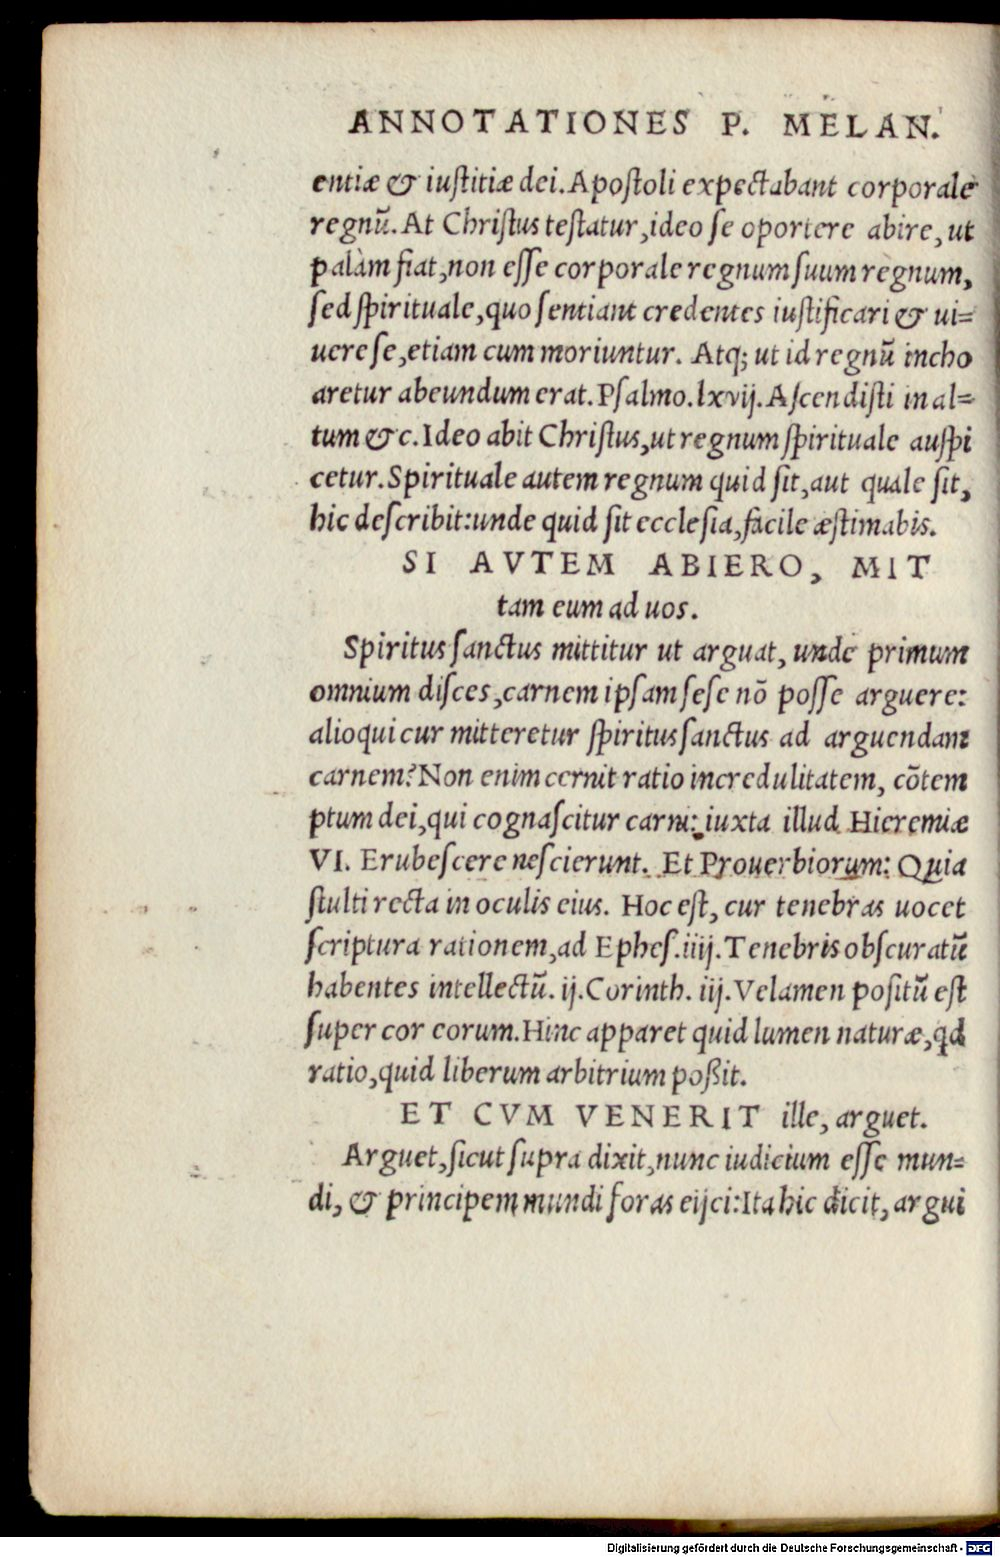 ANNOTATIONES P. MELAN.
entiæ & iuſtitiæ dei. Apoſtoli expectabant corporale
regnũ. At Chriſtus teſtatur, ideo ſe oportere abire, ut
palàm fiat, non eſſe corporale regnum ſuum regnum,
ſed ſpirituale, quo ſentiant credentes iuſtificari & ui=
uere ſe, etiam cum moriuntur. Atq; ut id regnũ incho
aretur abeundum erat. Pſalmo. lxvij. Aſcendiſti in al=
tum &c. Ideo abit Chriſtus, ut regnum ſpirituale auſpi
cetur. Spirituale autem regnum quid ſit, aut quale ſit,
hic deſcribit: unde quid ſit eccleſia, facile æſtimabis.
SI AVTEM ABIERO, MIT
tam eum ad uos.
Spiritus ſanctus mittitur ut arguat, unde primum
omnium diſces, carnem ipſam ſeſe nõ poſſe arguere:
alioqui cur mitteretur ſpiritus ſanctus ad arguendam
carnem? Non enim cernit ratio incredulitatem, cõtem
ptum dei, qui cognaſcitur carni: iuxta illud Hieremiæ
VI. Erubeſcere neſcierunt. Et Prouerbiorum: Quia
ſtulti recta in oculis eius. Hoc eſt, cur tenebras uocet
ſcriptura rationem, ad Epheſ. iiij. Tenebris obſcuratũ
habentes intellectũ. ij. Corinth. iij. Velamen poſitũ eſt
ſuper cor eorum. Hinc apparet quid lumen naturæ, qd
ratio, quid liberum arbitrium poßit.
ET CVM VENERIT ille, arguet.
Arguet, ſicut ſupra dixit, nunc iudicium eſſe mun=
di, & principem mundi foras eijci: Ita hic dicit, argui
Digitalisierung gefördert durch die Deutsche Forschungsgemeinschaft - DFG